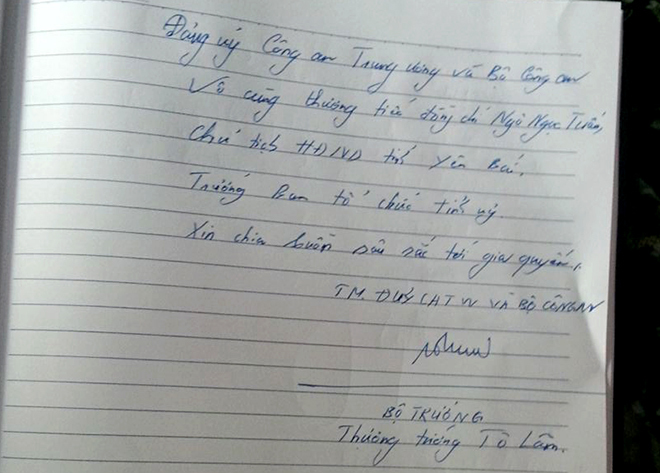 Đảng uỷ Công an Trung ương và Bộ Công an
Vô cùng thương tiếc đồng chí Ngô Ngọc Tuấn,
Chủ tịch HĐND tỉnh Yên Bái,
Trưởng Ban tổ chức tỉnh uỷ
Xin chia buồn sâu sắc tới gia quyến.
TM. ĐUỶ CATW VÀ BỘ CÔNG AN
BỘ TRƯỞNG
Thượng tướng Tô Lâm.